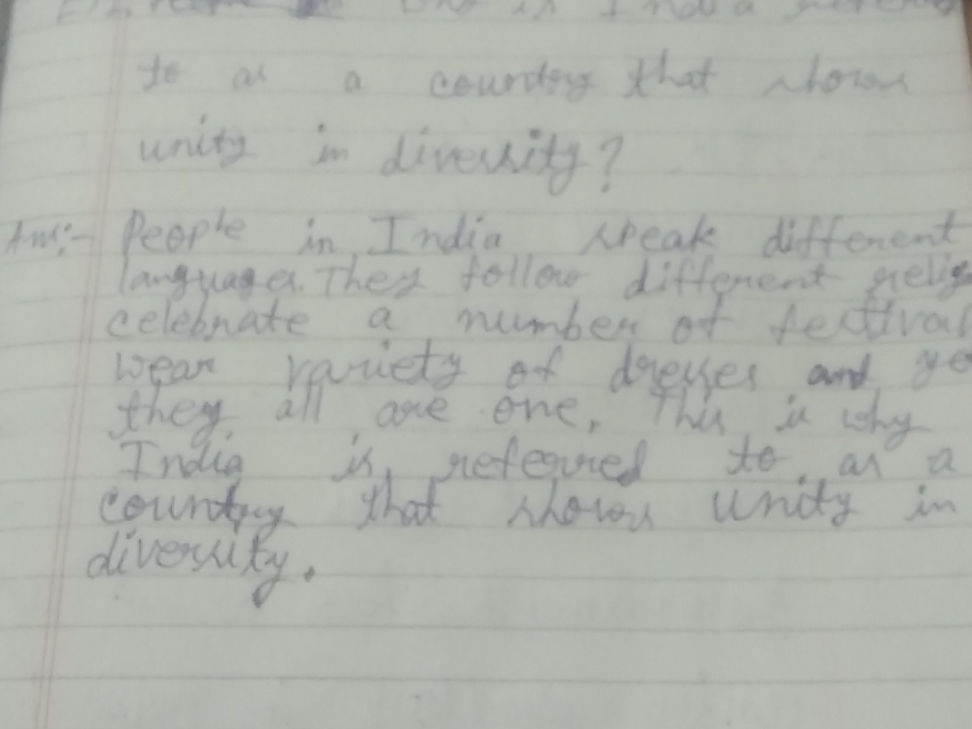 is India
to as a country that shows
unity in diversity?
Ans:- People in India speak different
languages. They follow different
celebrate a number of festival
wear variety of dresses and
they all are one. This is why
India is referred to as a
country that shows unity in
diversity.